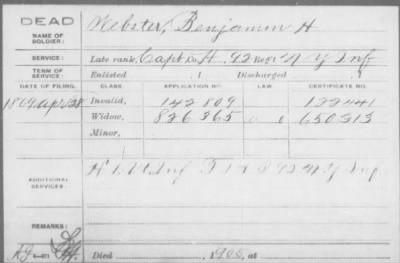 DEAD
NAME OF SOLDIER: Webster, Benjamin H
SERVICE: Late rank, Capt Co. H, 92 Reg't N Y Inf
TERM OF SERVICE: Enlisted , 1 Discharged , 1
DATE OF FILING. CLASS. APPLICATION NO. LAW CERTIFICATE NO.
1869 Apr 28 Invalid, 142809 122441
Widow, 826365 650313
Minor,
ADDITIONAL SERVICES: Inf 92 N Y Inf
REMARKS:
Died , 1905, at